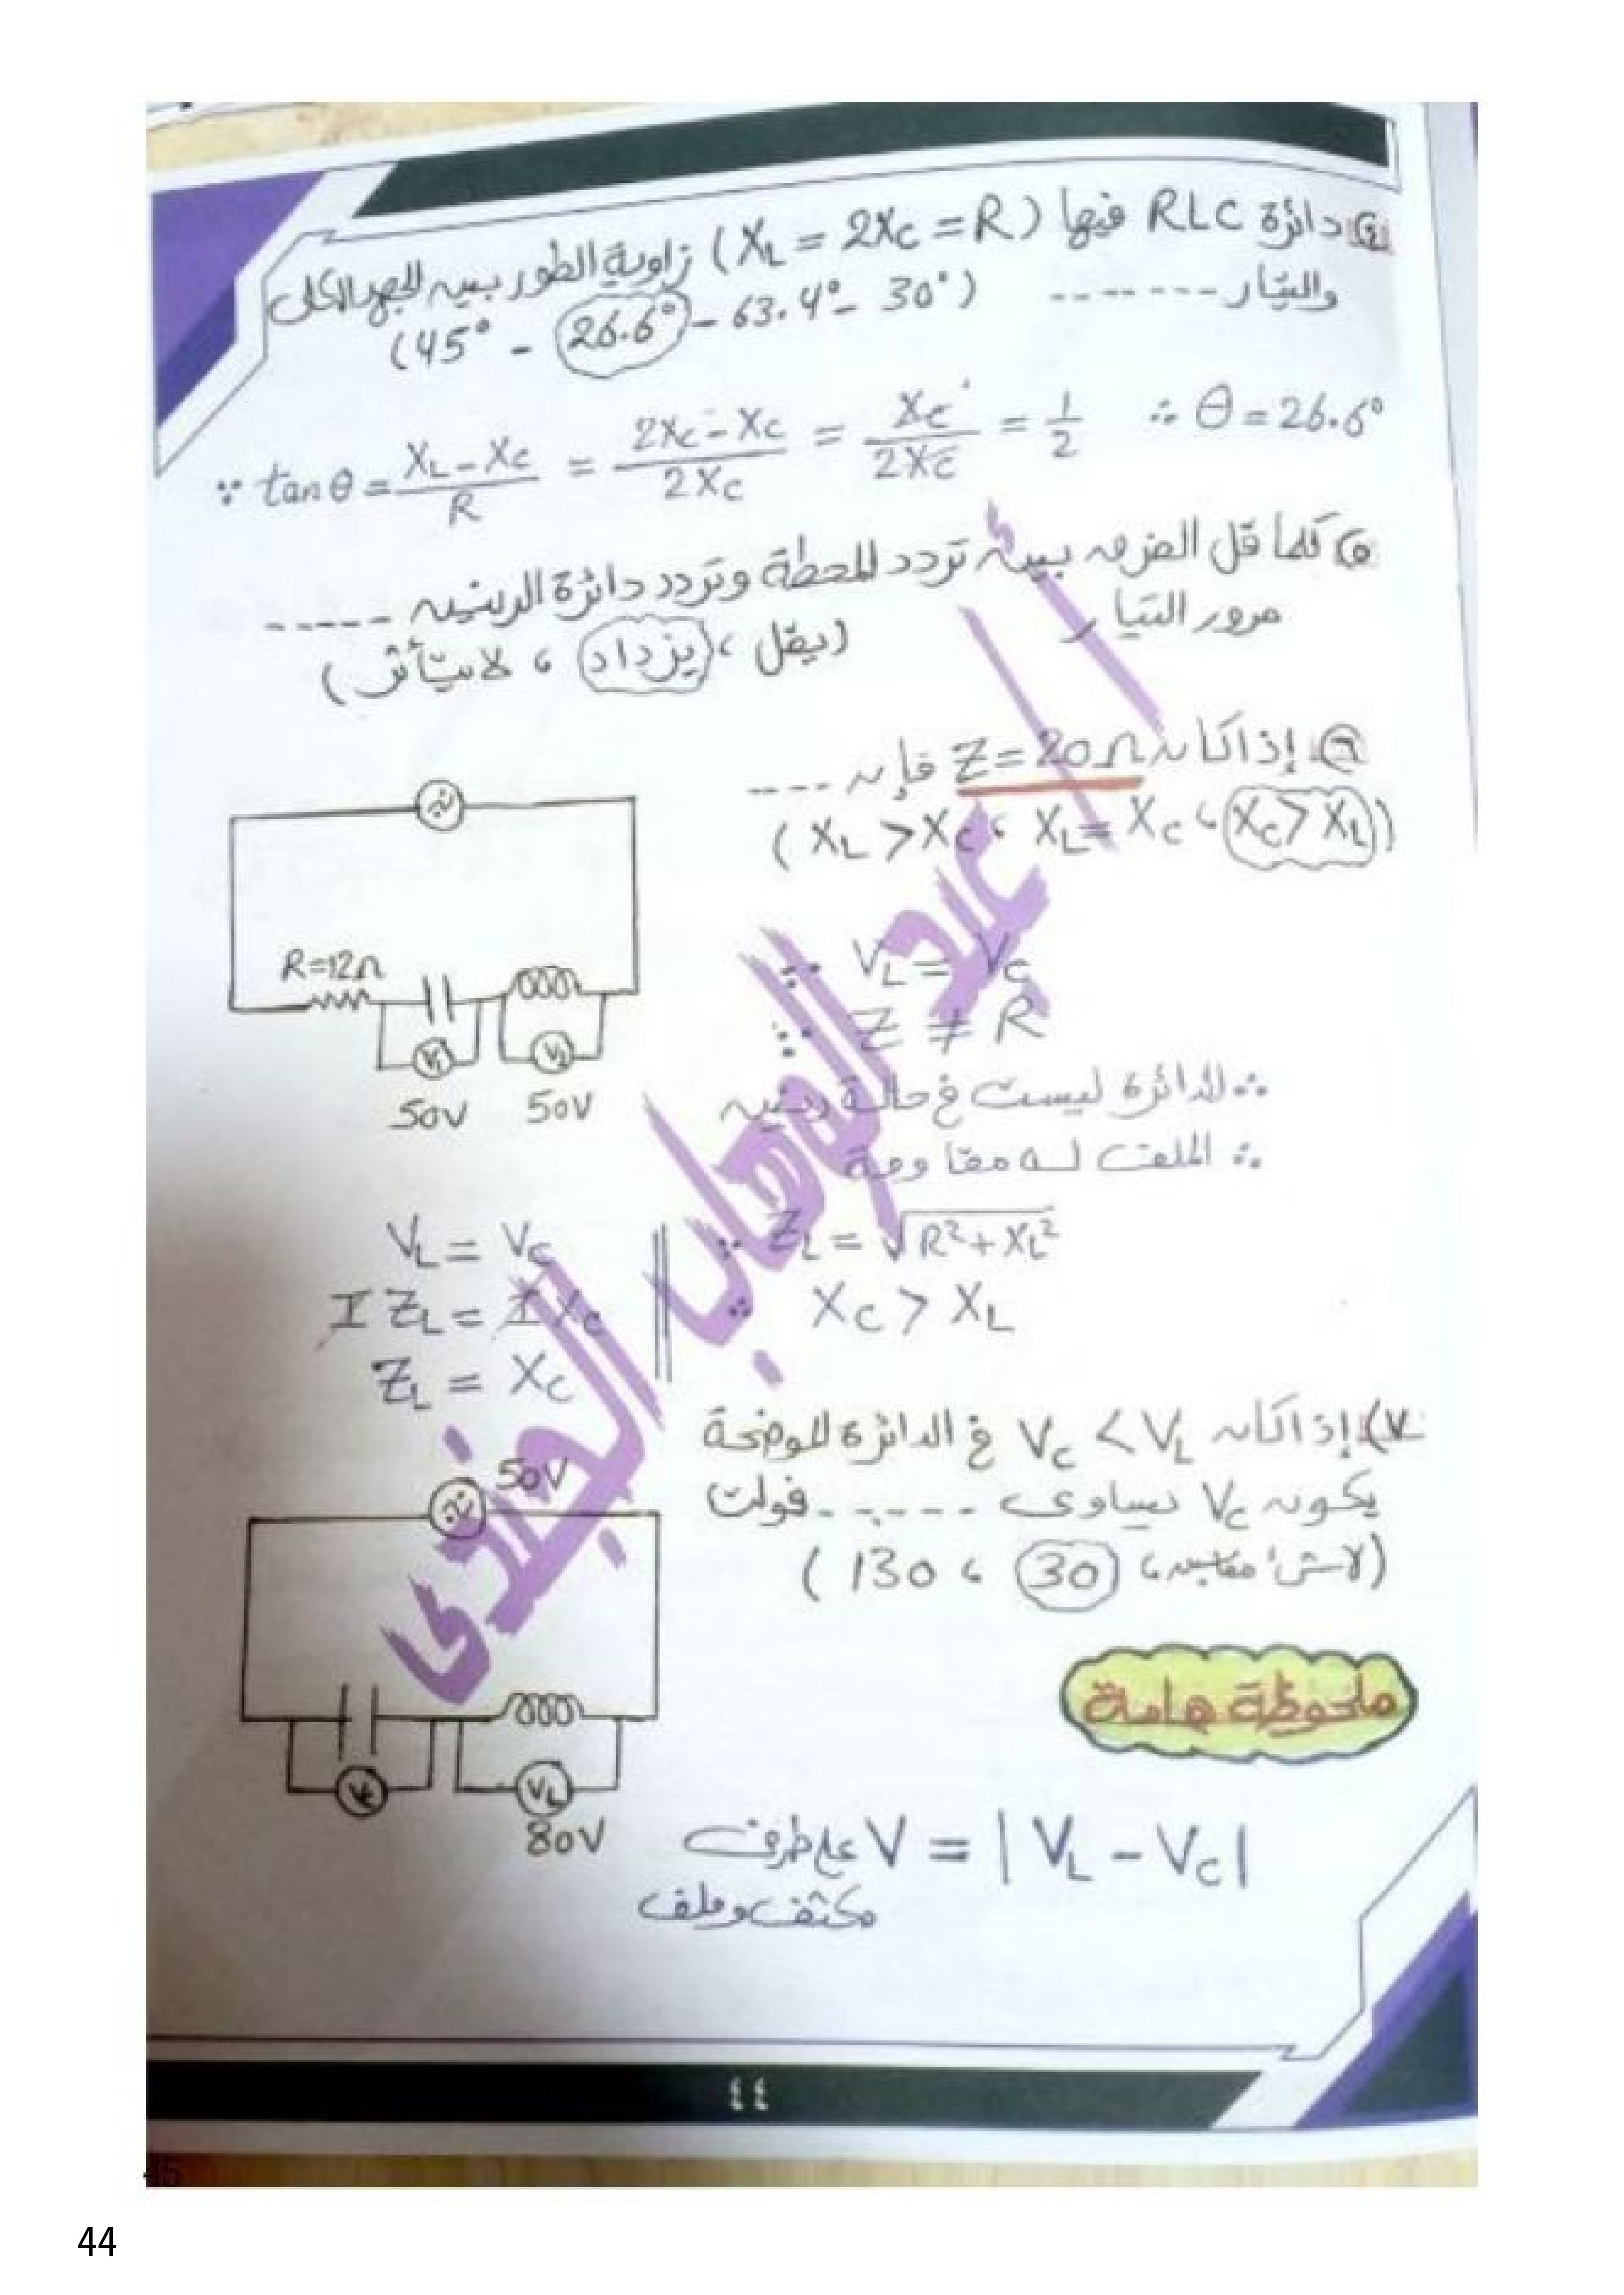 ٤) دائرة RLC فيها (XL = 2XC = R) زاوية الطور بين الجهد الكلى
والتيار -------
(45° - 26.6° - 63.4° - 30°)
∵ tan θ = (XL - XC)/R = (2XC - XC)/2XC = XC/2XC = 1/2 ∴ θ = 26.6°
٥) كلما قل الفرق بين تردد المحطة وتردد دائرة الرنين -----
مرور التيار
(يقل ، يزداد ، لا يتأثر)
٦) إذا كان Z = 20Ω فإن ----
(XL > XC ، XL = XC ، XC > XL)
R=12Ω
V1
V2
50V
50V
∵ VL = VC
∵ Z ≠ R
∴ الدائرة ليست فى حالة رنين
∴ الملف له مقاومة
∵ ZL = √(R² + XL²)
∵ XC > XL
VL = VC
I ZL = I XC
ZL = XC
٧) إذا كان VC < VL فى الدائرة الموضحة
يكون VC يساوى ------ فولت
(لا شئ مما سبق ، 30 ، 130)
50V
VC
VL
80V
ملحوظة هامة
V = | VL - VC | على طرفى
مكثف وملف
أ / عبد الوهاب الجندى
٤٤
45
44